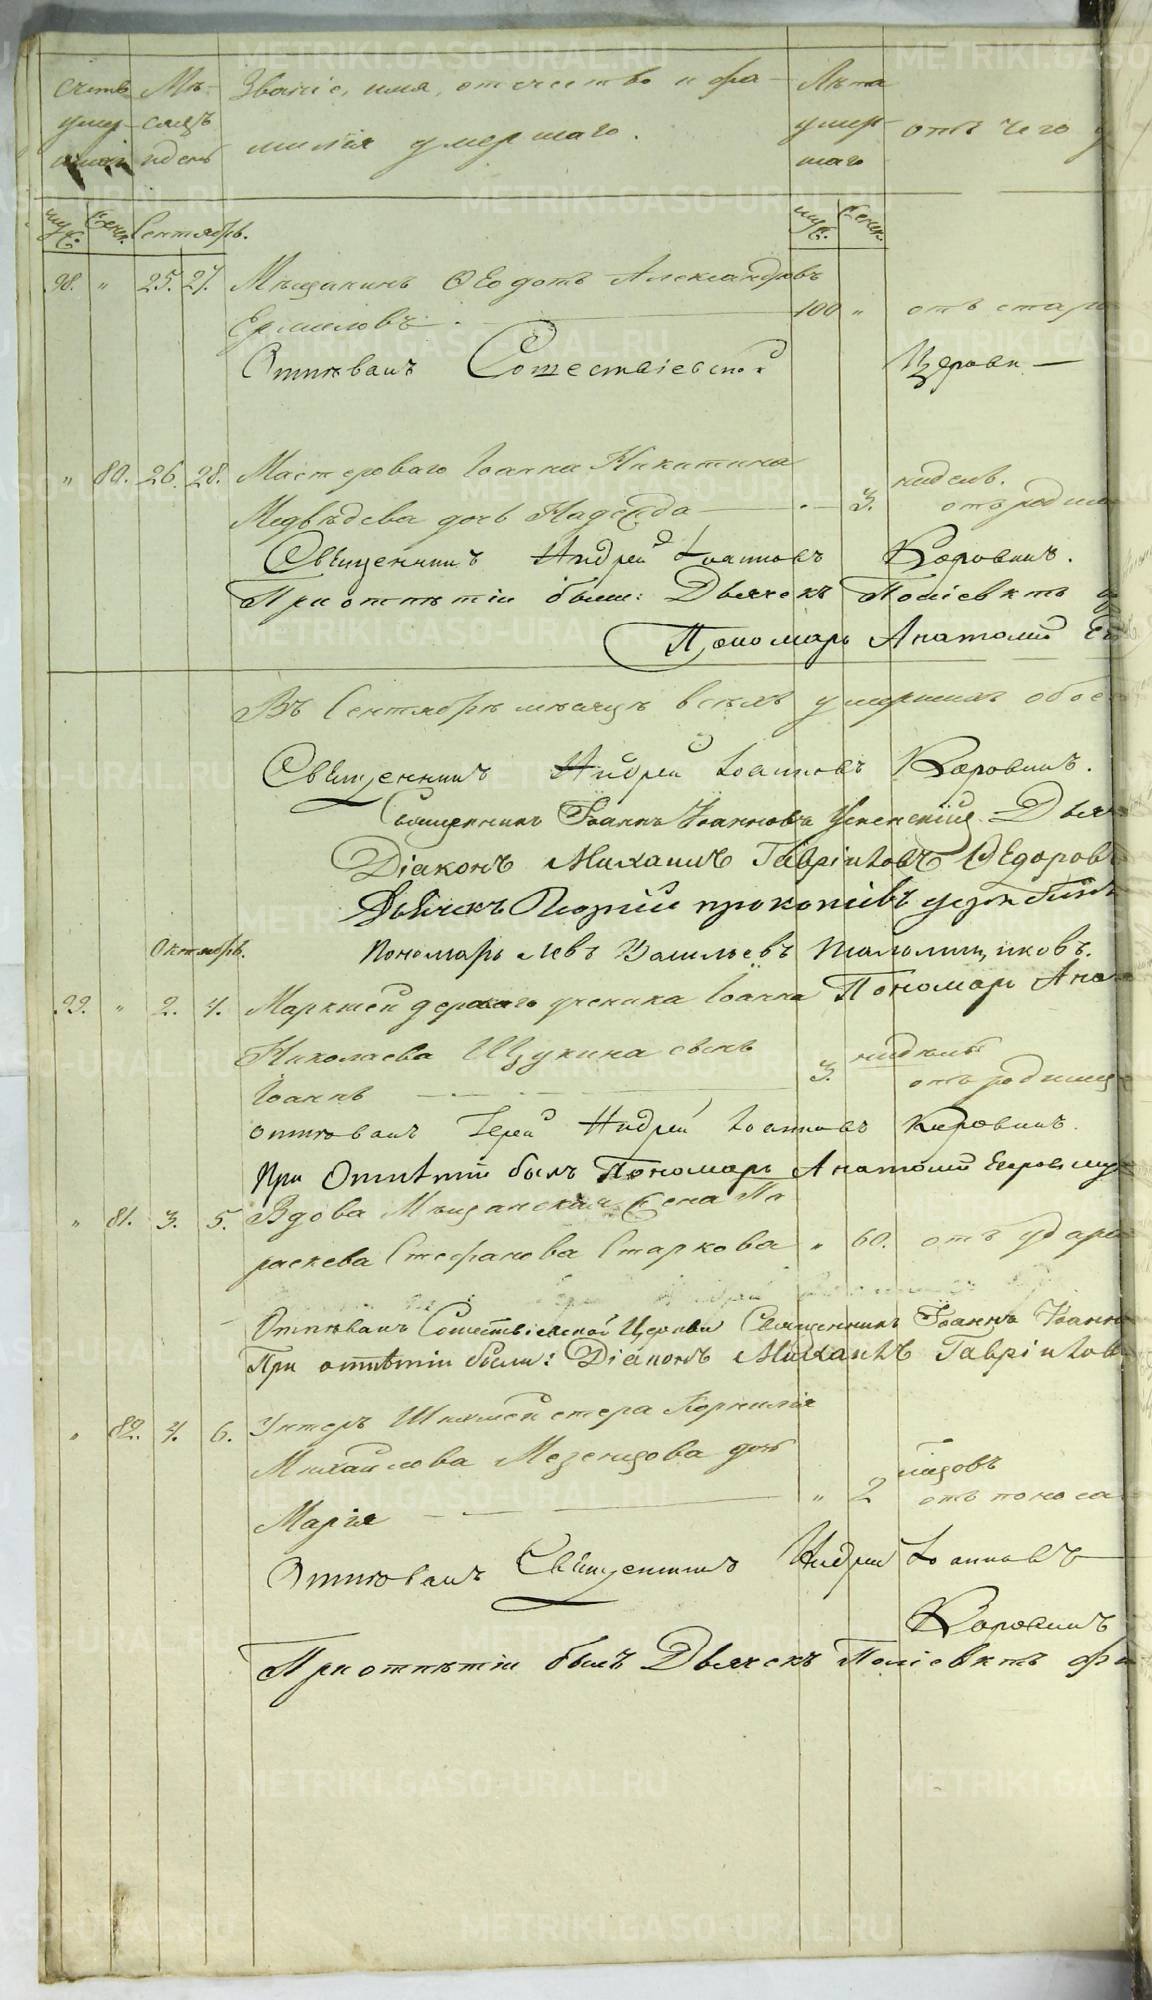 Счетъ умер-шихъ
Мѣ-сяцъ и день
Званіе, имя, отчество и фа-
милія умершаго.
Лѣта умер-шаго
отъ чего у
муж. женс. Сентябрь. муж. женс.
98. „ 25. 27. Мѣщанинъ Ѳеодотъ Александровъ
Ермиловъ 100 „ отъ старо
Отпѣвалъ Сошествіевской Церкви
„ 80. 26. 28. Мастероваго Іоанна Никитина
недель.
Медвѣдева дочь Надежда 3. отъ родим
Священникъ Андрей Іоанновъ Коровинъ.
При отпѣтіи были: Дьячекъ Поліевктъ
Пономарь Анатолій Ег
Въ Сентябрѣ мѣсяцѣ всѣхъ умершихъ обое
Священникъ Андрей Іоанновъ Коровинъ.
Священникъ Іоаннъ Іоанновъ Успенскій Дья
Діаконъ Михаилъ Гавріиловъ Ѳедоровъ
Дьячекъ прокопіевъ
Октябрь. Пономарь Левъ Васильевъ
99. „ 2. 4. Маркшейдерскаго ученика Іоанна Пономарь Ана
Николаева Щукина сынъ 3. недѣль
Іоаннъ отъ родимц
отпѣвалъ Іерей Андрей Іоанновъ Коровинъ.
При Отпѣтіи былъ Пономарь Анатолій Егоровъ
„ 81. 3. 5. Вдова Мѣщанская Жена Па
раскева Стефанова Старкова „ 60. отъ удара
Отпѣвалъ Сошествіевской Церкви Священникъ Іоаннъ Іоанно
При отпѣтіи были: Діаконъ Михаилъ Гавріилов
„ 82. 4. 6. Унтеръ Шихмейстера Корнилія
Михайлова Мезенцова дочь
Марія „ 2 отъ поноса
Отпѣвалъ Священникъ Андрей Іоанновъ
Коровинъ
При отпѣтіи былъ Дьячекъ Поліевктъ
METRIKI.GASO-URAL.RU